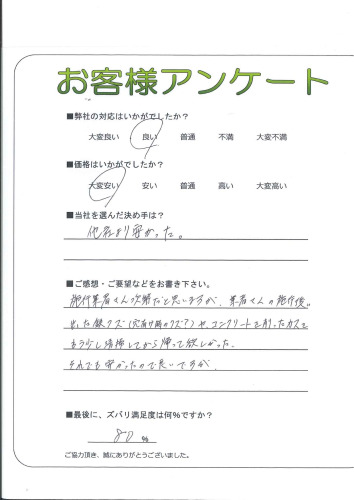 お客様アンケート
■弊社の対応はいかがでしたか？
大変良い 良い 普通 不満 大変不満
■価格はいかがでしたか？
大変安い 安い 普通 高い 大変高い
■当社を選んだ決め手は？
他社より安かった。
■ご感想・ご要望などをお書き下さい。
施行業者さん次第だと思いますが、業者さんの施行後。
出た銀クズ(穴あけ時のクズ?)や、コンクリートを削ったカスを
もう少し清掃してから帰って欲しかった。
それでも安かったので良いですが
■最後に、ズバリ満足度は何%ですか？
80 %
ご協力頂き、誠にありがとうございました。